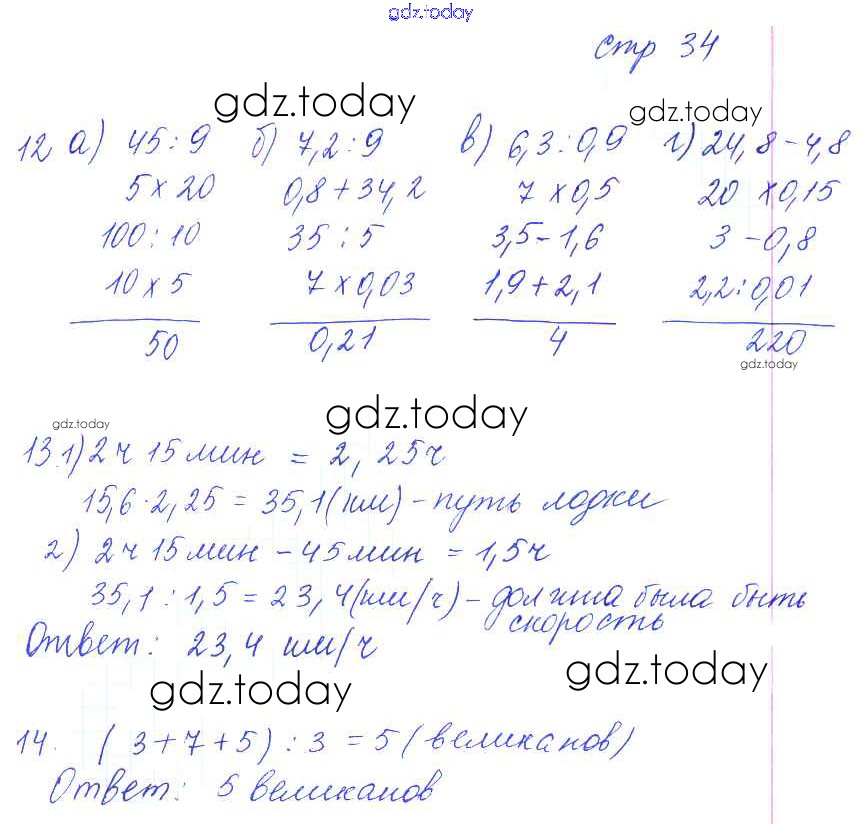 gdz.today
стр 34
gdz.today gdz.today
12 а) 45:9 б) 7,2:9 в) 6,3:0,9 г) 24,8-4,8
5×20 0,8+34,2 7×0,5 20 ×0,15
100:10 35:5 3,5-1,6 3-0,8
10×5 7×0,03 1,9+2,1 2,2:0,01
50 0,21 4 220
gdz.today
gdz.today gdz.today
13.1) 2ч 15мин = 2,25ч
15,6·2,25 = 35,1(км) - путь лодки
2) 2ч 15мин - 45мин = 1,5ч
35,1:1,5 = 23,4(км/ч) - должна была быть
скорость
Ответ: 23,4 км/ч
gdz.today gdz.today
14. (3+7+5):3 = 5 (великанов)
Ответ: 5 великанов